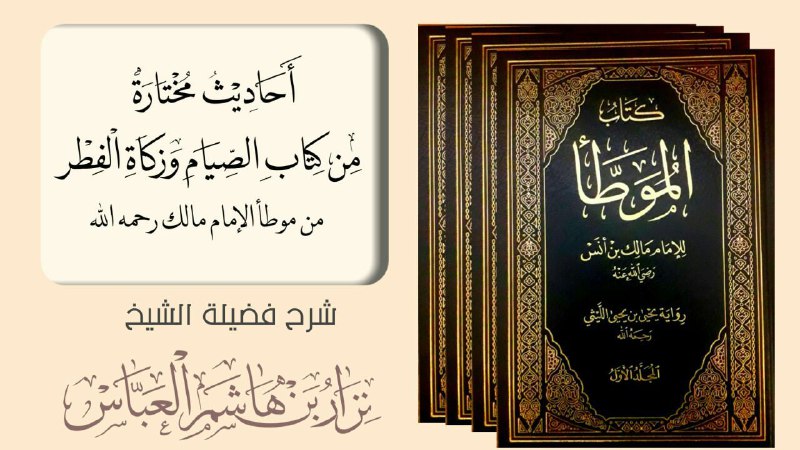 أَحَادِيْثُ مُخْتَارَةٌ
مِن كِتَابِ الصِّيَامِ وَزَكَاةِ الْفِطْر
من موطأ الإمام مالك رحمه الله
شرح فضيلة الشيخ
نِزَارُ بْنُ هَاشِم الْعَبَّاس
كِتَابُ
المُوَطَّأ
لِلإمَام مَالِك بن أنَسْ
رَضِيَ اللهُ عَنْهُ
رِوَايَة يَحْيَى بن يَحْيَى اللَّيْثِي
رَحِمَهُ الله
المُجَلَّدُ الأوَّلُ